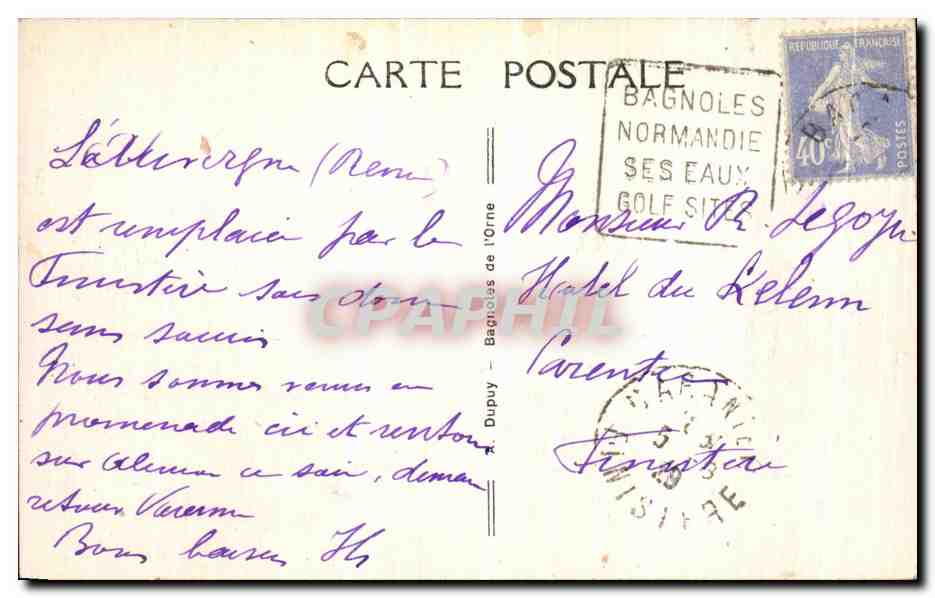 CARTE POSTALE
BAGNOLES
NORMANDIE
SES EAUX
GOLF SITES
REPUBLIQUE FRANÇAISE
40c
POSTES
BAG
L'Auvergne
est remplacée par le
Finistère sans
sans soucis
Nous sommes venus en
promenade ici et rentrons
sur ce soir, demain
retour Varenne
Bons baisers
A Dupuy - Bagnoles de l'Orne
Monsieur R. Legoyer
Hotel du Kelenn
Carentec
Finistère
CARANTEC
FINISTERE
CPAPHIL